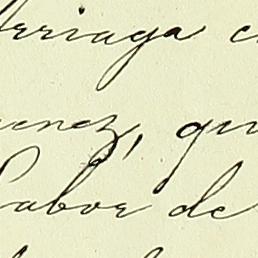 rriaga c
enez, qu
Labor de